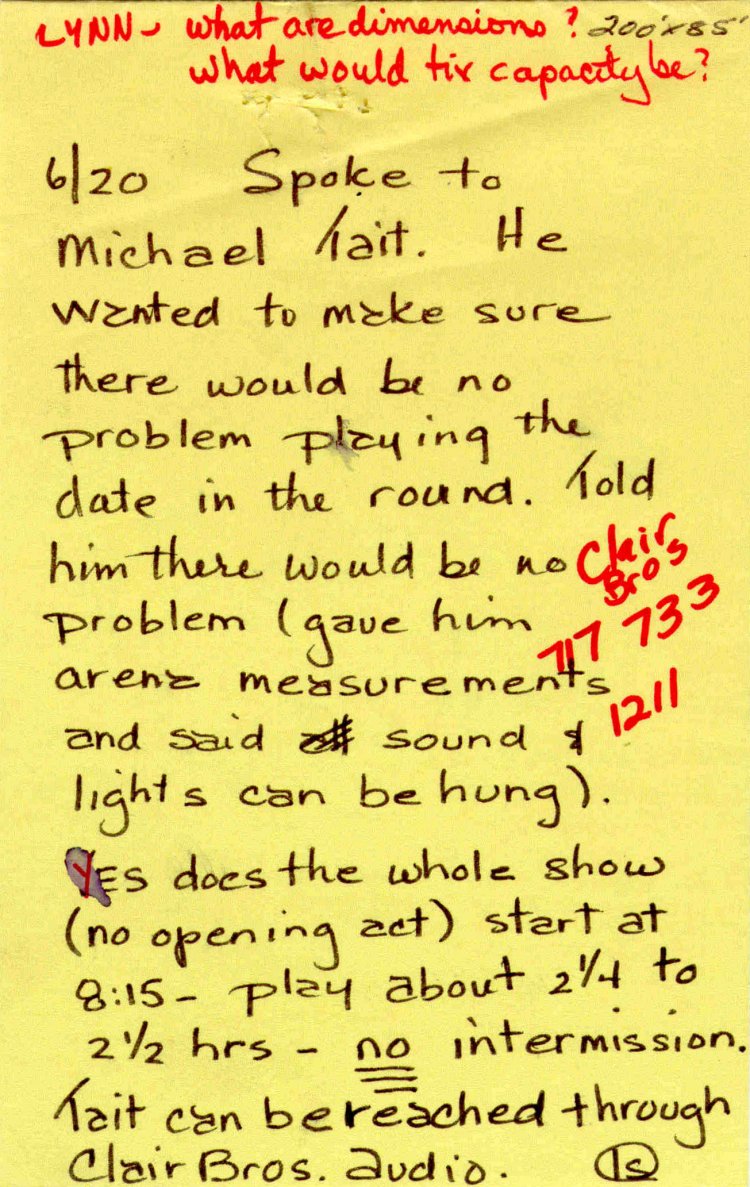 LYNN - what are dimensions? 200'x85'
what would tix capacity be?
6/20 Spoke to
Michael Tait. He
wanted to make sure
there would be no
problem playing the
date in the round. Told
him there would be no
problem (gave him
arena measurements
and said sound &
lights can be hung).
Clair
Bros
717 733
1211
YES does the whole show
(no opening act) start at
8:15 - play about 2 1/4 to
2 1/2 hrs - no intermission.
Tait can be reached through
Clair Bros. audio. ls